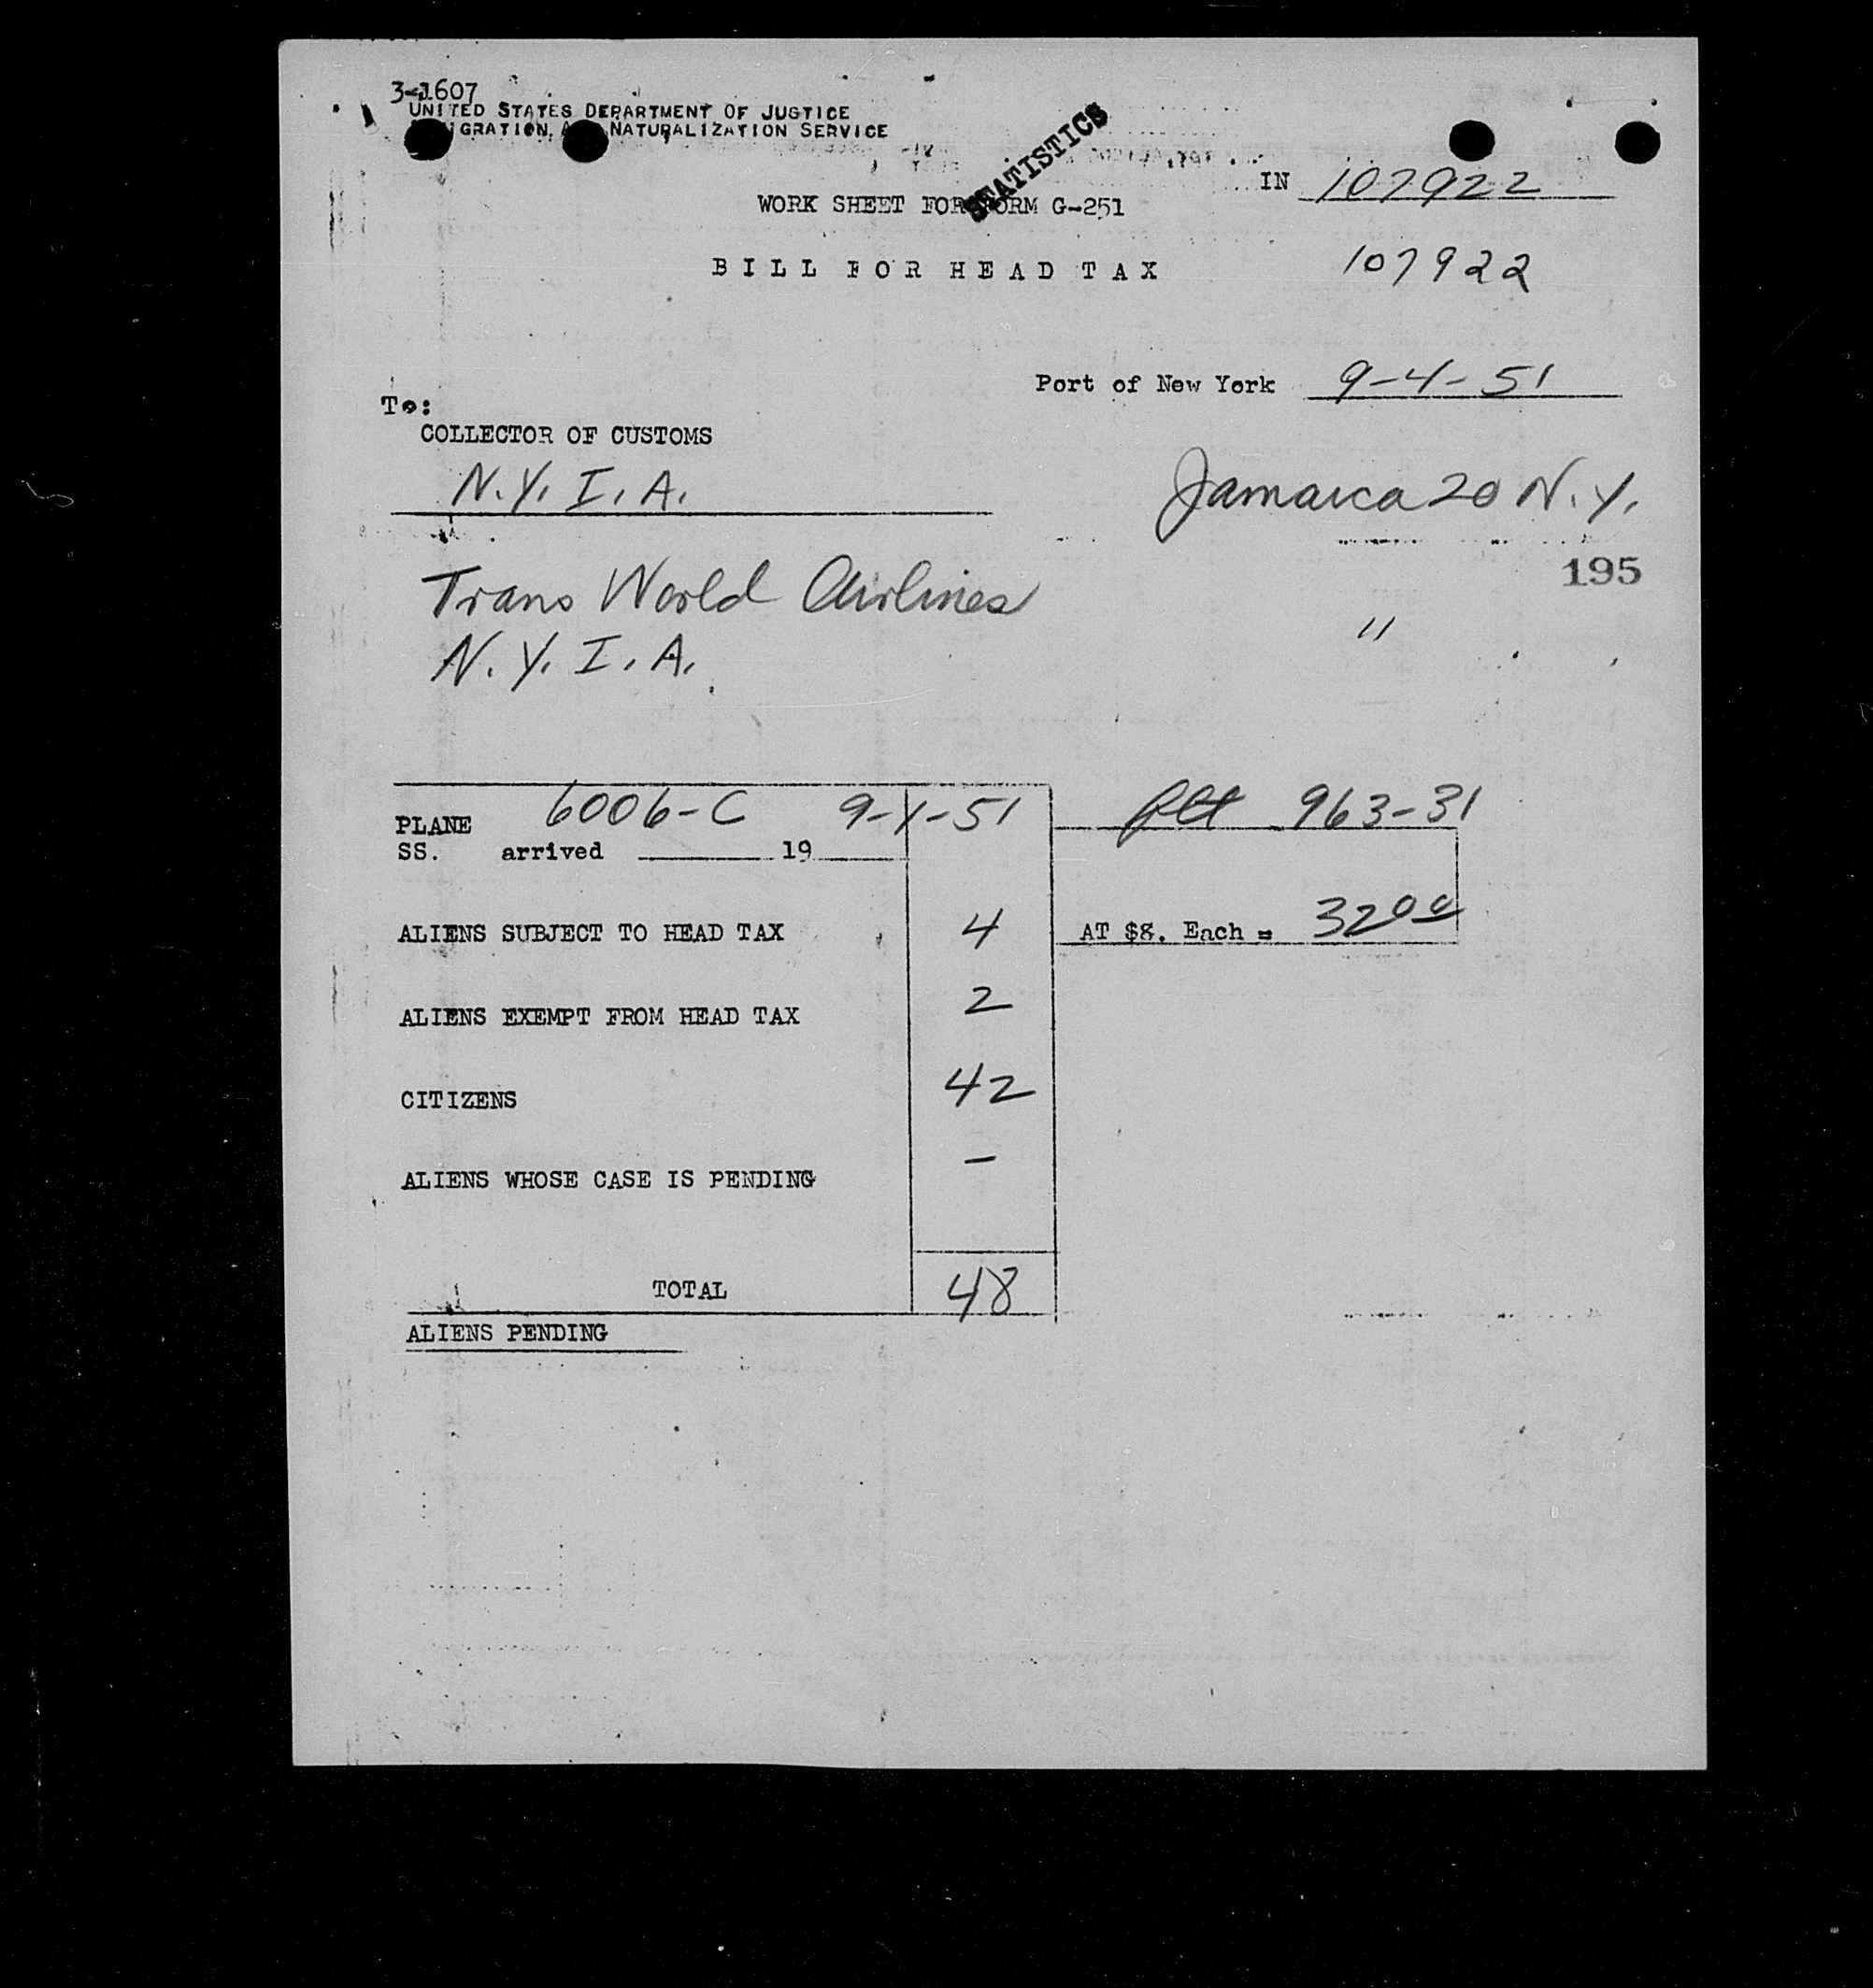 3-1607
UNITED STATES DEPARTMENT OF JUSTICE
IGRATION, A NATURALIZATION SERVICE
STATISTICS
IN 107922
WORK SHEET FOR FORM G-251
BILL FOR HEAD TAX
107922
Port of New York 9-4-51
To:
COLLECTOR OF CUSTOMS
N.Y.I.A. Jamaica 20 N.Y.
195
Trans World Airlines "
N.Y.I.A.
PLANE 6006-C 9-4-51 flt 963-31
SS. arrived 19
ALIENS SUBJECT TO HEAD TAX 4 AT $8. Each = 32 00
ALIENS EXEMPT FROM HEAD TAX 2
CITIZENS 42
ALIENS WHOSE CASE IS PENDING -
TOTAL 48
ALIENS PENDING